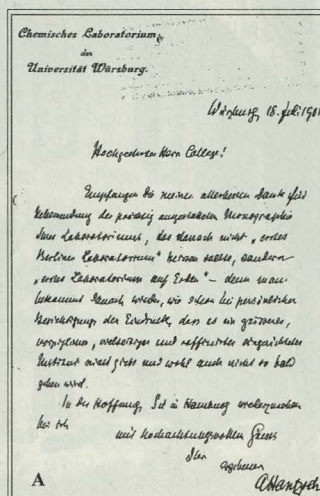 Chemisches Laboratorium
der
Universität Würzburg.
Würzburg, 15. Juli 1901
Hochgeehrter Herr College!
Empfangen Sie meinen allerbesten Dank für
Uebersendung der prächtig ausgestatteten Monographie
Ihres Laboratoriums, das danach nicht „erstes
Berliner Laboratorium“ heissen sollte, sondern
„erstes Laboratorium auf Erden“ – denn man
bekommt danach wieder, wie schon bei persönlicher
Besichtigung den Eindruck, dass es ein
und raffinirter eingerichtetes
Institut nicht giebt und wohl auch nicht so bald
geben wird.
In der Hoffnung, Sie in Hamburg wiederzusehen
bin ich
mit hochachtungsvollem Gruss
Ihr
ergebener
A Hantzsch
A